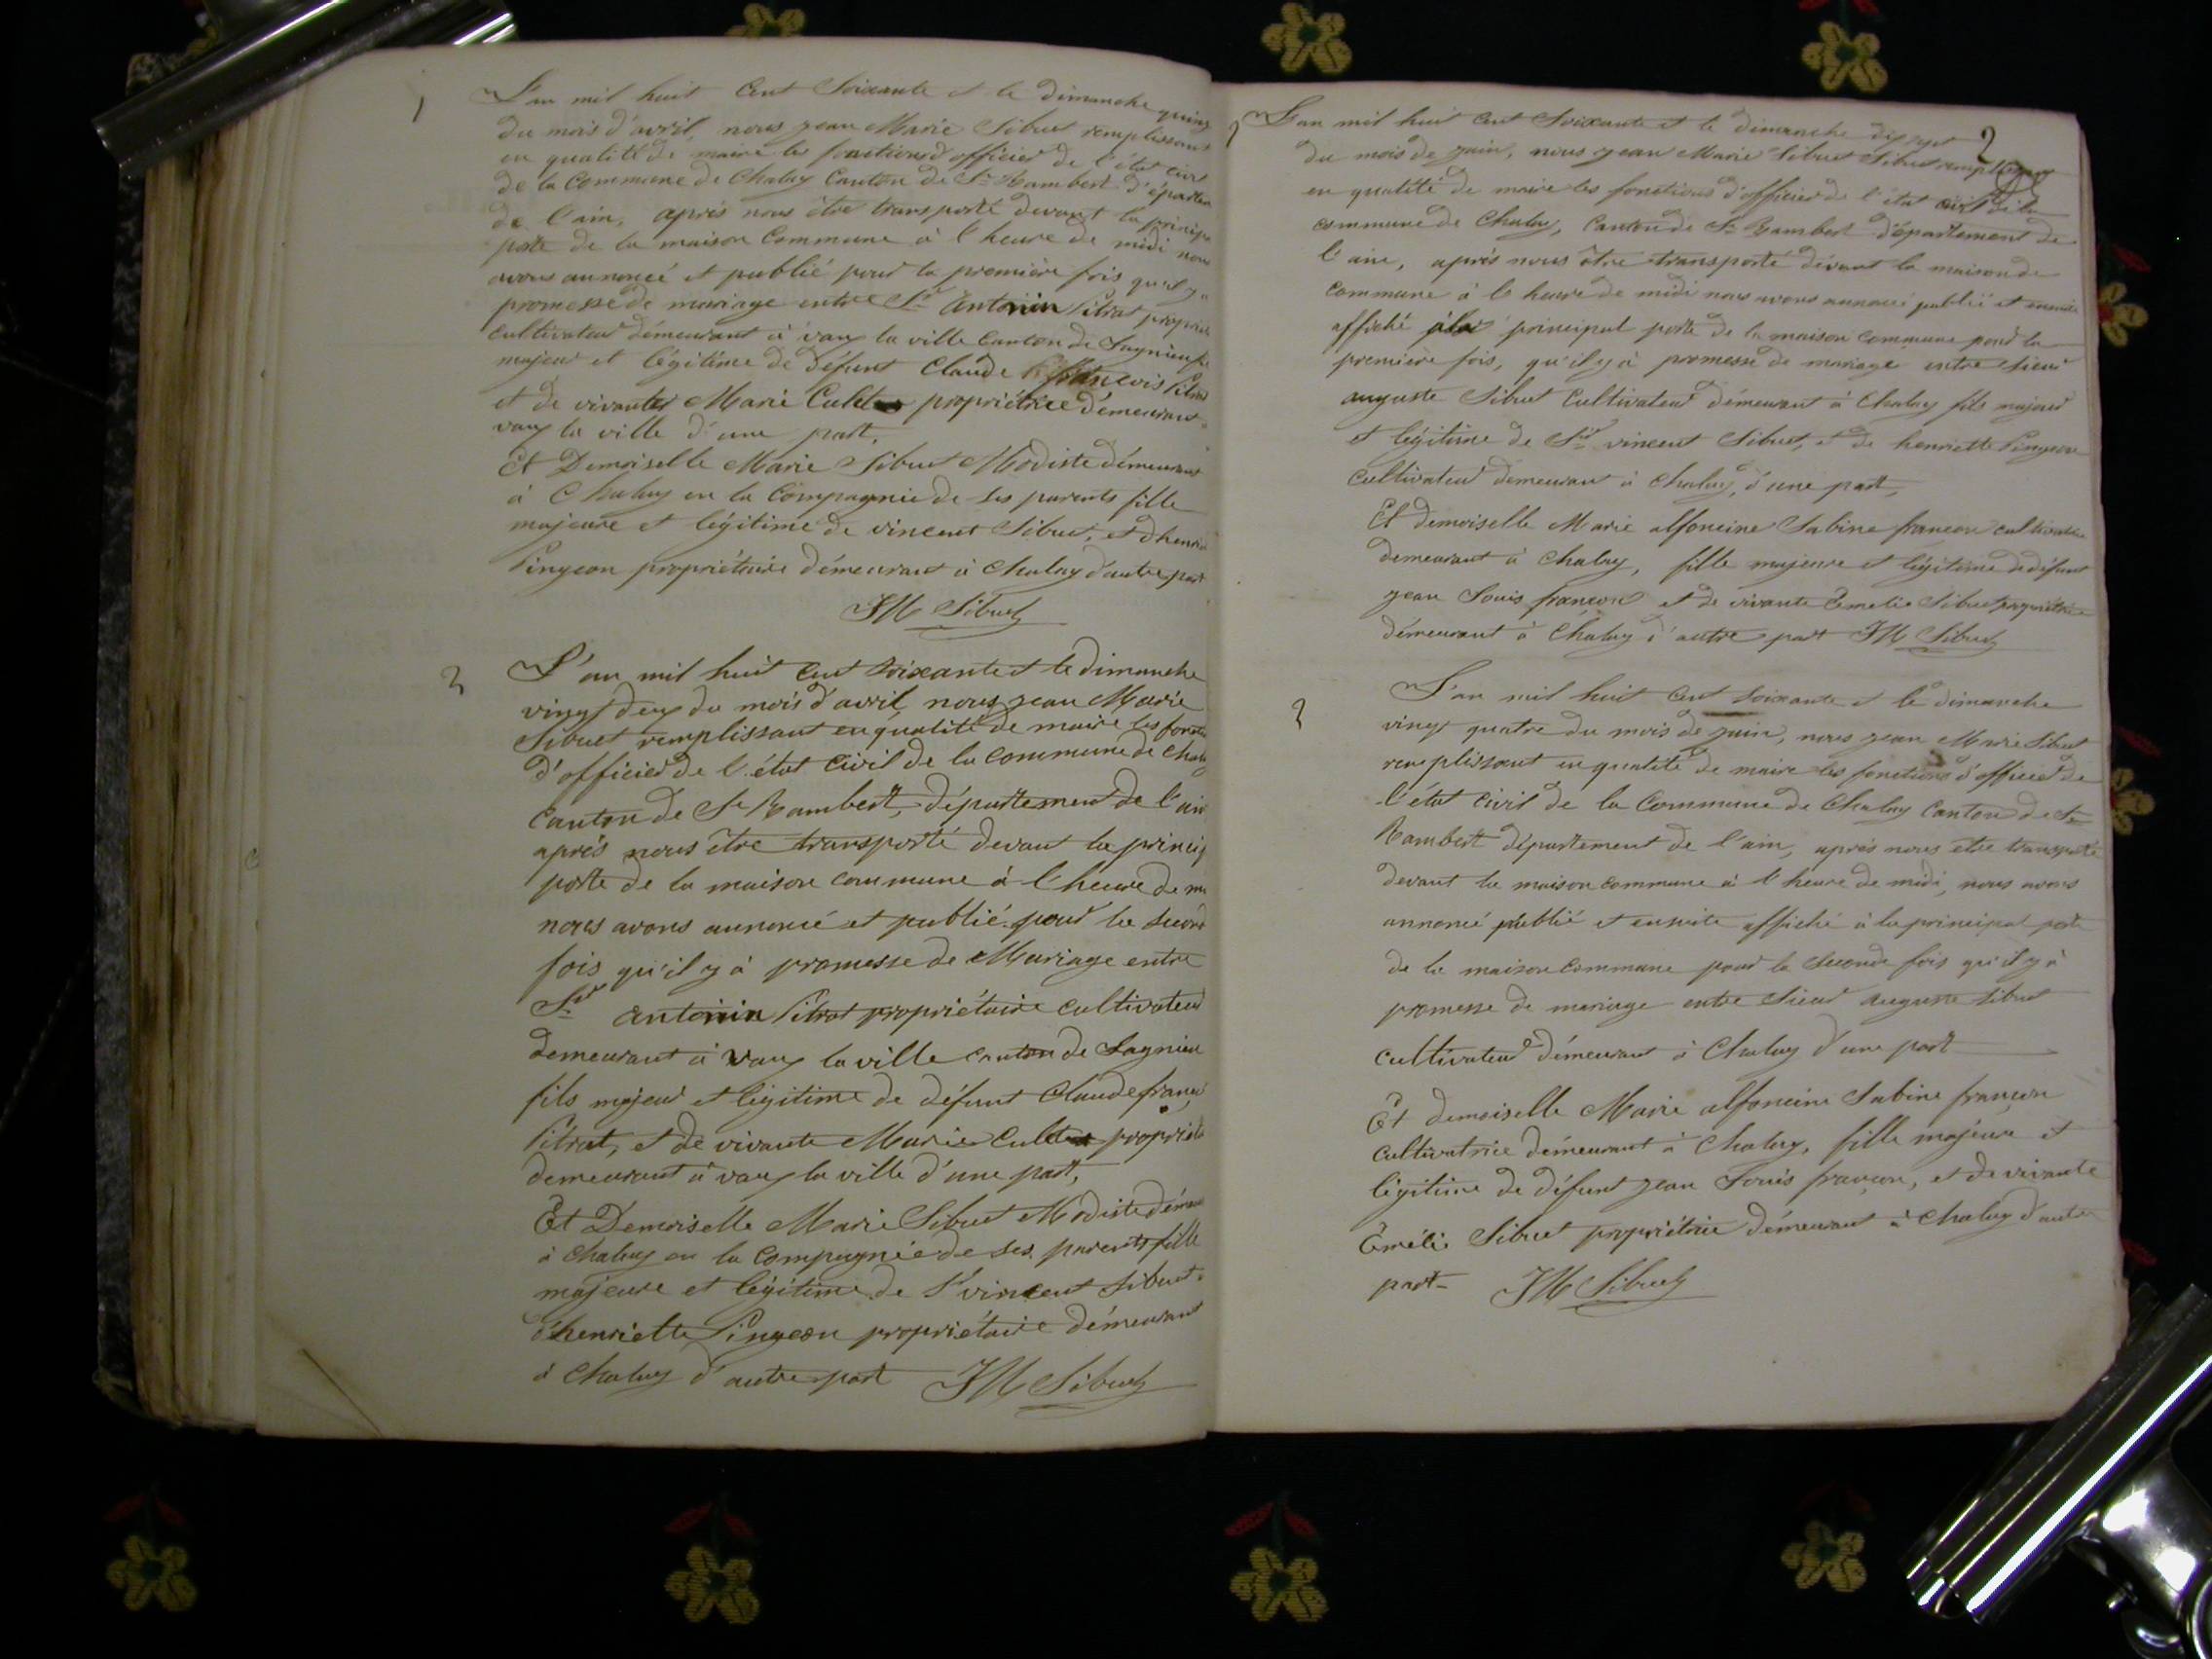 1
L'an mil huit Cent Soixante et le dimanche quinz
du mois d'avril, nous jean Marie Sibuet remplissant
en qualité de maire les fonctions d'officier de l'état civil
de la Commune de Chaley Canton de St Rambert d'épartem
de l'ain, après nous être transporté devant la princip
porte de la maison Commune à l'heure de midi nous
avons annoncé et publié pour la première fois qu'il y a
promesse de mariage entre Sr antonin Pitrat propriét
cultivateur démeurant à vaux la ville Canton de Lagnieu fi
majeur et légitime de défunt Claude françois Pitrat
et de vivante Marie propriétrice démeurant
vaux la ville d'une part,
Et Demoiselle Marie Sibuet Modiste démeurant
à Chaley en la Compagnie de ses parents fille
majeure et légitime de vincent Sibuet, et d'henri
Pingeon propriétaire démeurant à Chaley d'autre part
JM Sibuet
2
L'an mil huit cent soixante et le dimanche
vingt deux du mois d'avril, nous jean Marie
Sibuet remplissant en qualité de maire les foncti
d'officier de l'état civil de la commune de Chaley
Canton de St Rambert, département de l'ain
après nous être transporté devant la princip
porte de la maison commune à l'heure de mi
nous avons annoncé et publié pour la second
fois qu'il y à promesse de Mariage entre
Sr antonin Pitrat propriétaire cultivateur
demeurant à vaux la ville canton de Lagnieu
fils majeur et légitime de défunt Claude franç
Pitrat, et de vivante Marie propriét
demeurant à vaux la ville d'une part,
Et Démoiselle Marie Sibuet Modiste démeu
à Chaley en la Compagnie de ses parents fille
majeure et légitime de Sr vincent Sibuet
d'henriette Pingeon propriétaire démeurant
à Chaley d'autre part JM Sibuet
2
L'an mil huit cent Soixante et le dimanche dix sept
du mois de juin, nous jean Marie Sibuet Sibuet remplissant
en qualité de maire les fonctions d'officier de l'état civil de la
commune de Chaley, Canton de St Rambert d'épartement de
l'ain, après nous être transporté dévant la maison de
commune à l'heure de midi nous avons annoncé publié et ensuite
affiché à la principal porte de la maison commune pour la
première fois, qu'il y à promesse de mariage entre sieur
auguste Sibuet Cultivateur démeurant à Chaley fils majeur
et légitime de Sr vincent Sibuet, et de henriette Pingeon
cultivateur demeurant à Chaley, d'une part,
Et demoiselle Marie alfoncine Sabine françon cultivatrice
demeurant à Chaley, fille majeure et légitime de défunt
jean Louis françon et de vivante Émelie Sibuet propriétrice
démeurant à Chaley d'autre part JM Sibuet
2
L'an mil huit cent soixante et le dimanche
vingt quatre du mois de juin, nous jean Marie Sibuet
remplissant en qualité de maire les fonctions d'officier de
l'état civil de la Commune de Chaley Canton de St
Rambert département de l'ain, après nous etre transporté
devant la maison commune à l'heure de midi, nous avons
annoncé publié et ensuite affiché à la principal porte
de la maison commune pour la seconde fois qu'il y à
promesse de mariage entre Sieur auguste Sibuet
cultivateur démeurant à Chaley d'une part
Et demoiselle Marie alfoncine Sabine françon
cultivatrice démeurant à Chaley, fille majeure et
légitime de défunt jean Louis françon, et de vivante
Émélie Sibuet propriétrice démeurant à Chaley d'autre
part JM Sibuet